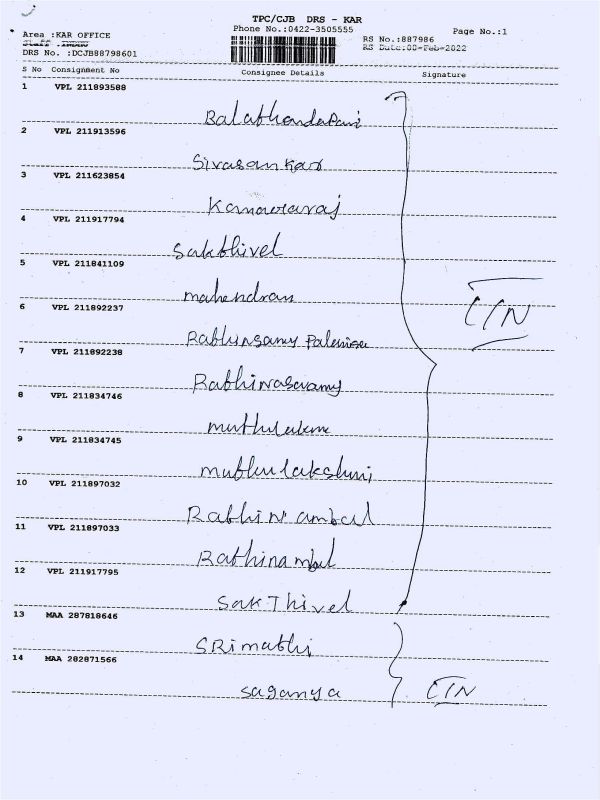 TPC/CJB DRS - KAR
Phone No.:0422-3505555
Page No.:1
Area :KAR OFFICE
RS No.:887986
RS Date:08-Feb-2022
DRS No. :DCJB88798601
S No Consignment No Consignee Details Signature
1 VPL 211893588
Balathandapani
2 VPL 211913596
Sivasankar
3 VPL 211623854
Kamaraj
4 VPL 211917794
Sakthivel
5 VPL 211841109
mahendran
6 VPL 211892237
Rathinsamy Palanisa
7 VPL 211892238
Rathinaswamy
8 VPL 211834746
9 VPL 211834745
muthulakshmi
10 VPL 211897032
Rathin ambal
11 VPL 211897033
Rathinambal
12 VPL 211917795
SakThivel
13 MAA 287818646
SRimathi
14 MAA 282871566
saganya